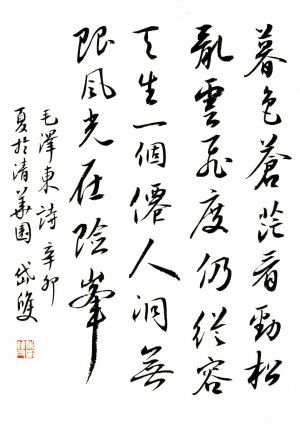 暮色蒼茫看勁松
亂雲飛度仍從容
天生一個僊人洞無
限風光在險峰
毛澤東詩辛卯
夏於清華園 岱雙